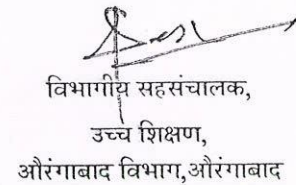 विभागीय सहसंचालक,
उच्च शिक्षण,
औरंगाबाद विभाग,औरंगाबाद